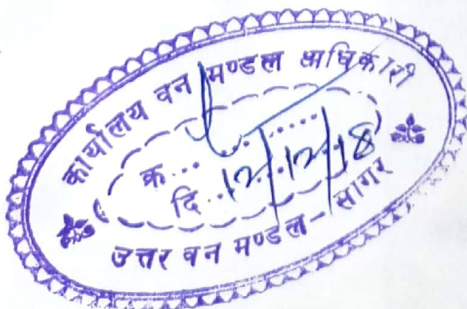 कार्यालय वन मण्डल अधिकारी
क्र..........
दि..12/12/18
उत्तर वन मण्डल-सागर